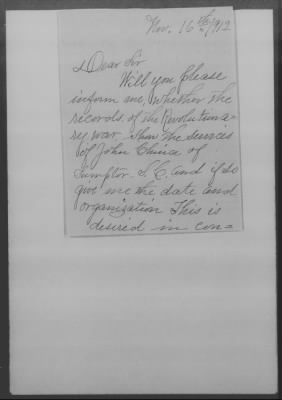 Nov. 16th/1912
Dear Sir
Will you please
inform me, whether the
records of the Revolutiona-
ry war show the services
of John China of
Sumpter S. C. and if so
give me the date and
organization This is
desired in con-